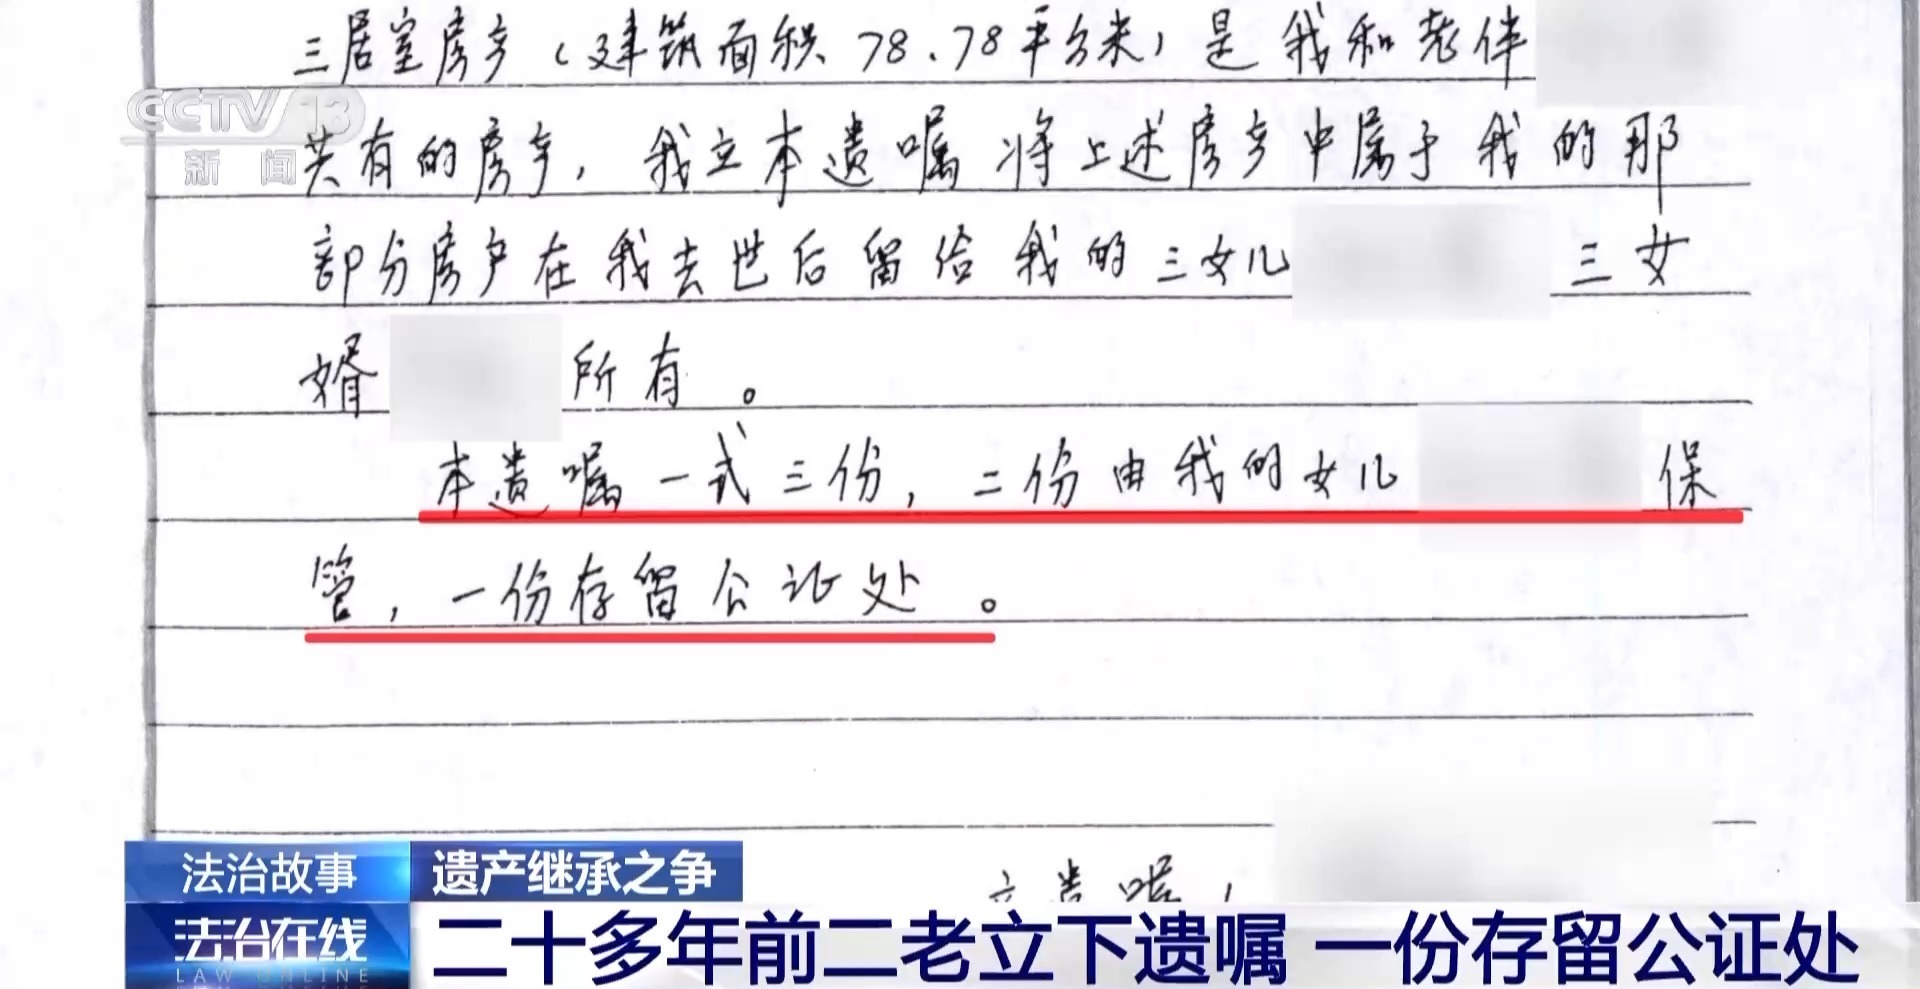 三居室房产（建筑面积78.78平方米）是我和老伴
CCTV 13
新闻
共有的房产，我立本遗嘱将上述房产中属于我的那
部分房产在我去世后留给我的三女儿 三女
婿 所有。
本遗嘱一式三份，二份由我的女儿 保
管，一份存留公证处。
立遗嘱人
法治故事
遗产继承之争
法治在线
LAW ONLINE
二十多年前二老立下遗嘱 一份存留公证处